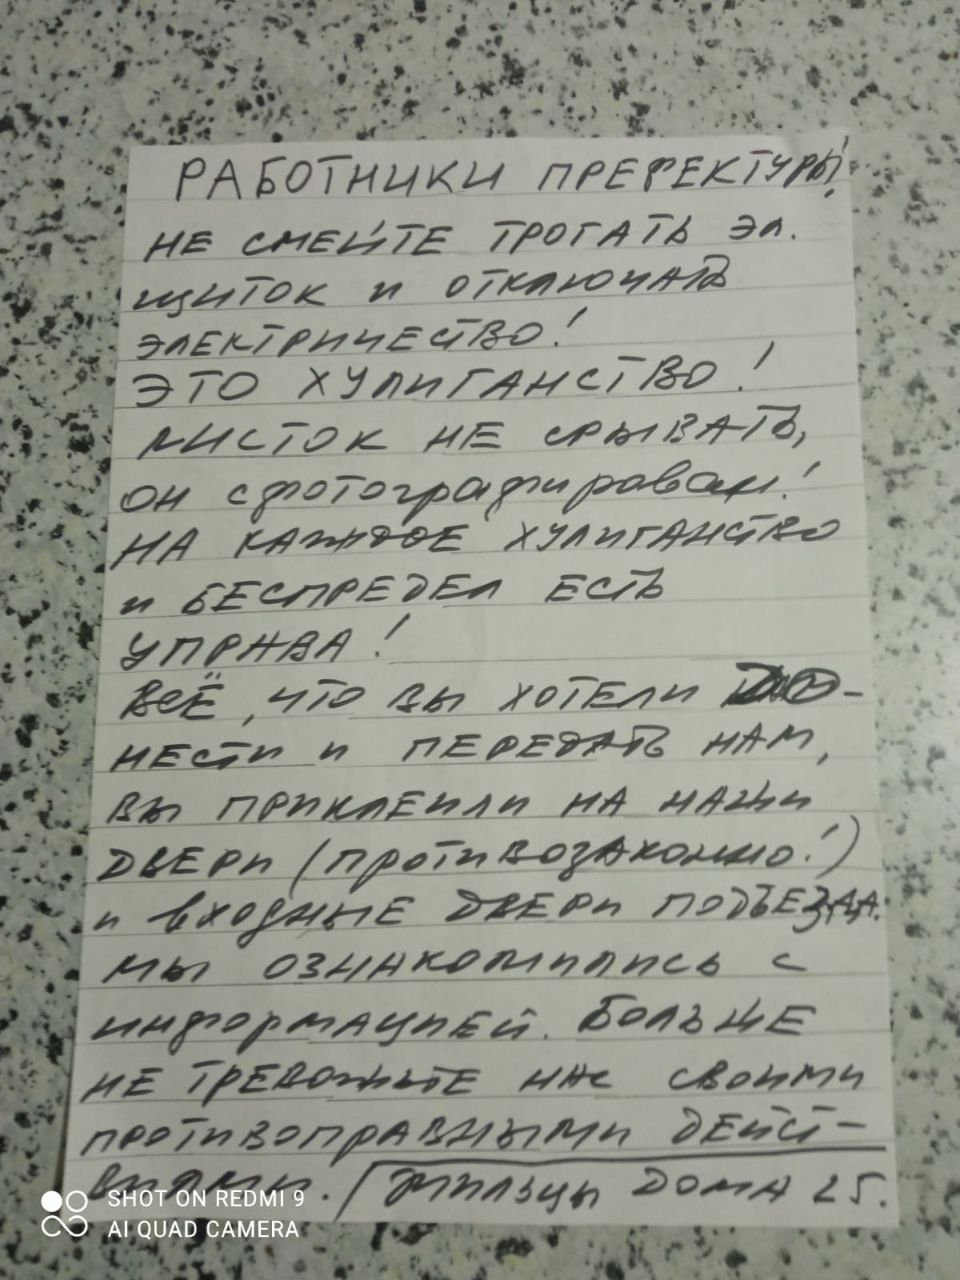 РАБОТНИКИ ПРЕФЕКТУРЫ!
НЕ СМЕЙТЕ ТРОГАТЬ ЭЛ.
ЩИТОК И ОТКЛЮЧАТЬ
ЭЛЕКТРИЧЕСТВО!
ЭТО ХУЛИГАНСТВО!
ЛИСТОК НЕ СРЫВАТЬ,
ОН сфотографирован!
НА КАЖДОЕ ХУЛИГАНСТВО
И БЕСПРЕДЕЛ ЕСТЬ
УПРАВА!
ВСЁ, ЧТО ВЫ ХОТЕЛИ ДО-
НЕСТИ И ПЕРЕДАТЬ НАМ,
ВЫ ПРИКЛЕИЛИ НА НАШИ
ДВЕРИ (ПРОТИВОЗАКОННО!)
И ВХОДНЫЕ ДВЕРИ ПОДЪЕЗДА.
МЫ ОЗНАКОМИЛИСЬ С
ИНФОРМАЦИЕЙ. БОЛЬШЕ
НЕ ТРЕВОЖЬТЕ НАС СВОИМИ
ПРОТИВОПРАВНЫМИ ДЕЙСТ-
ВИЯМИ. ЖИЛЬЦЫ ДОМА 25.
SHOT ON REDMI 9
AI QUAD CAMERA